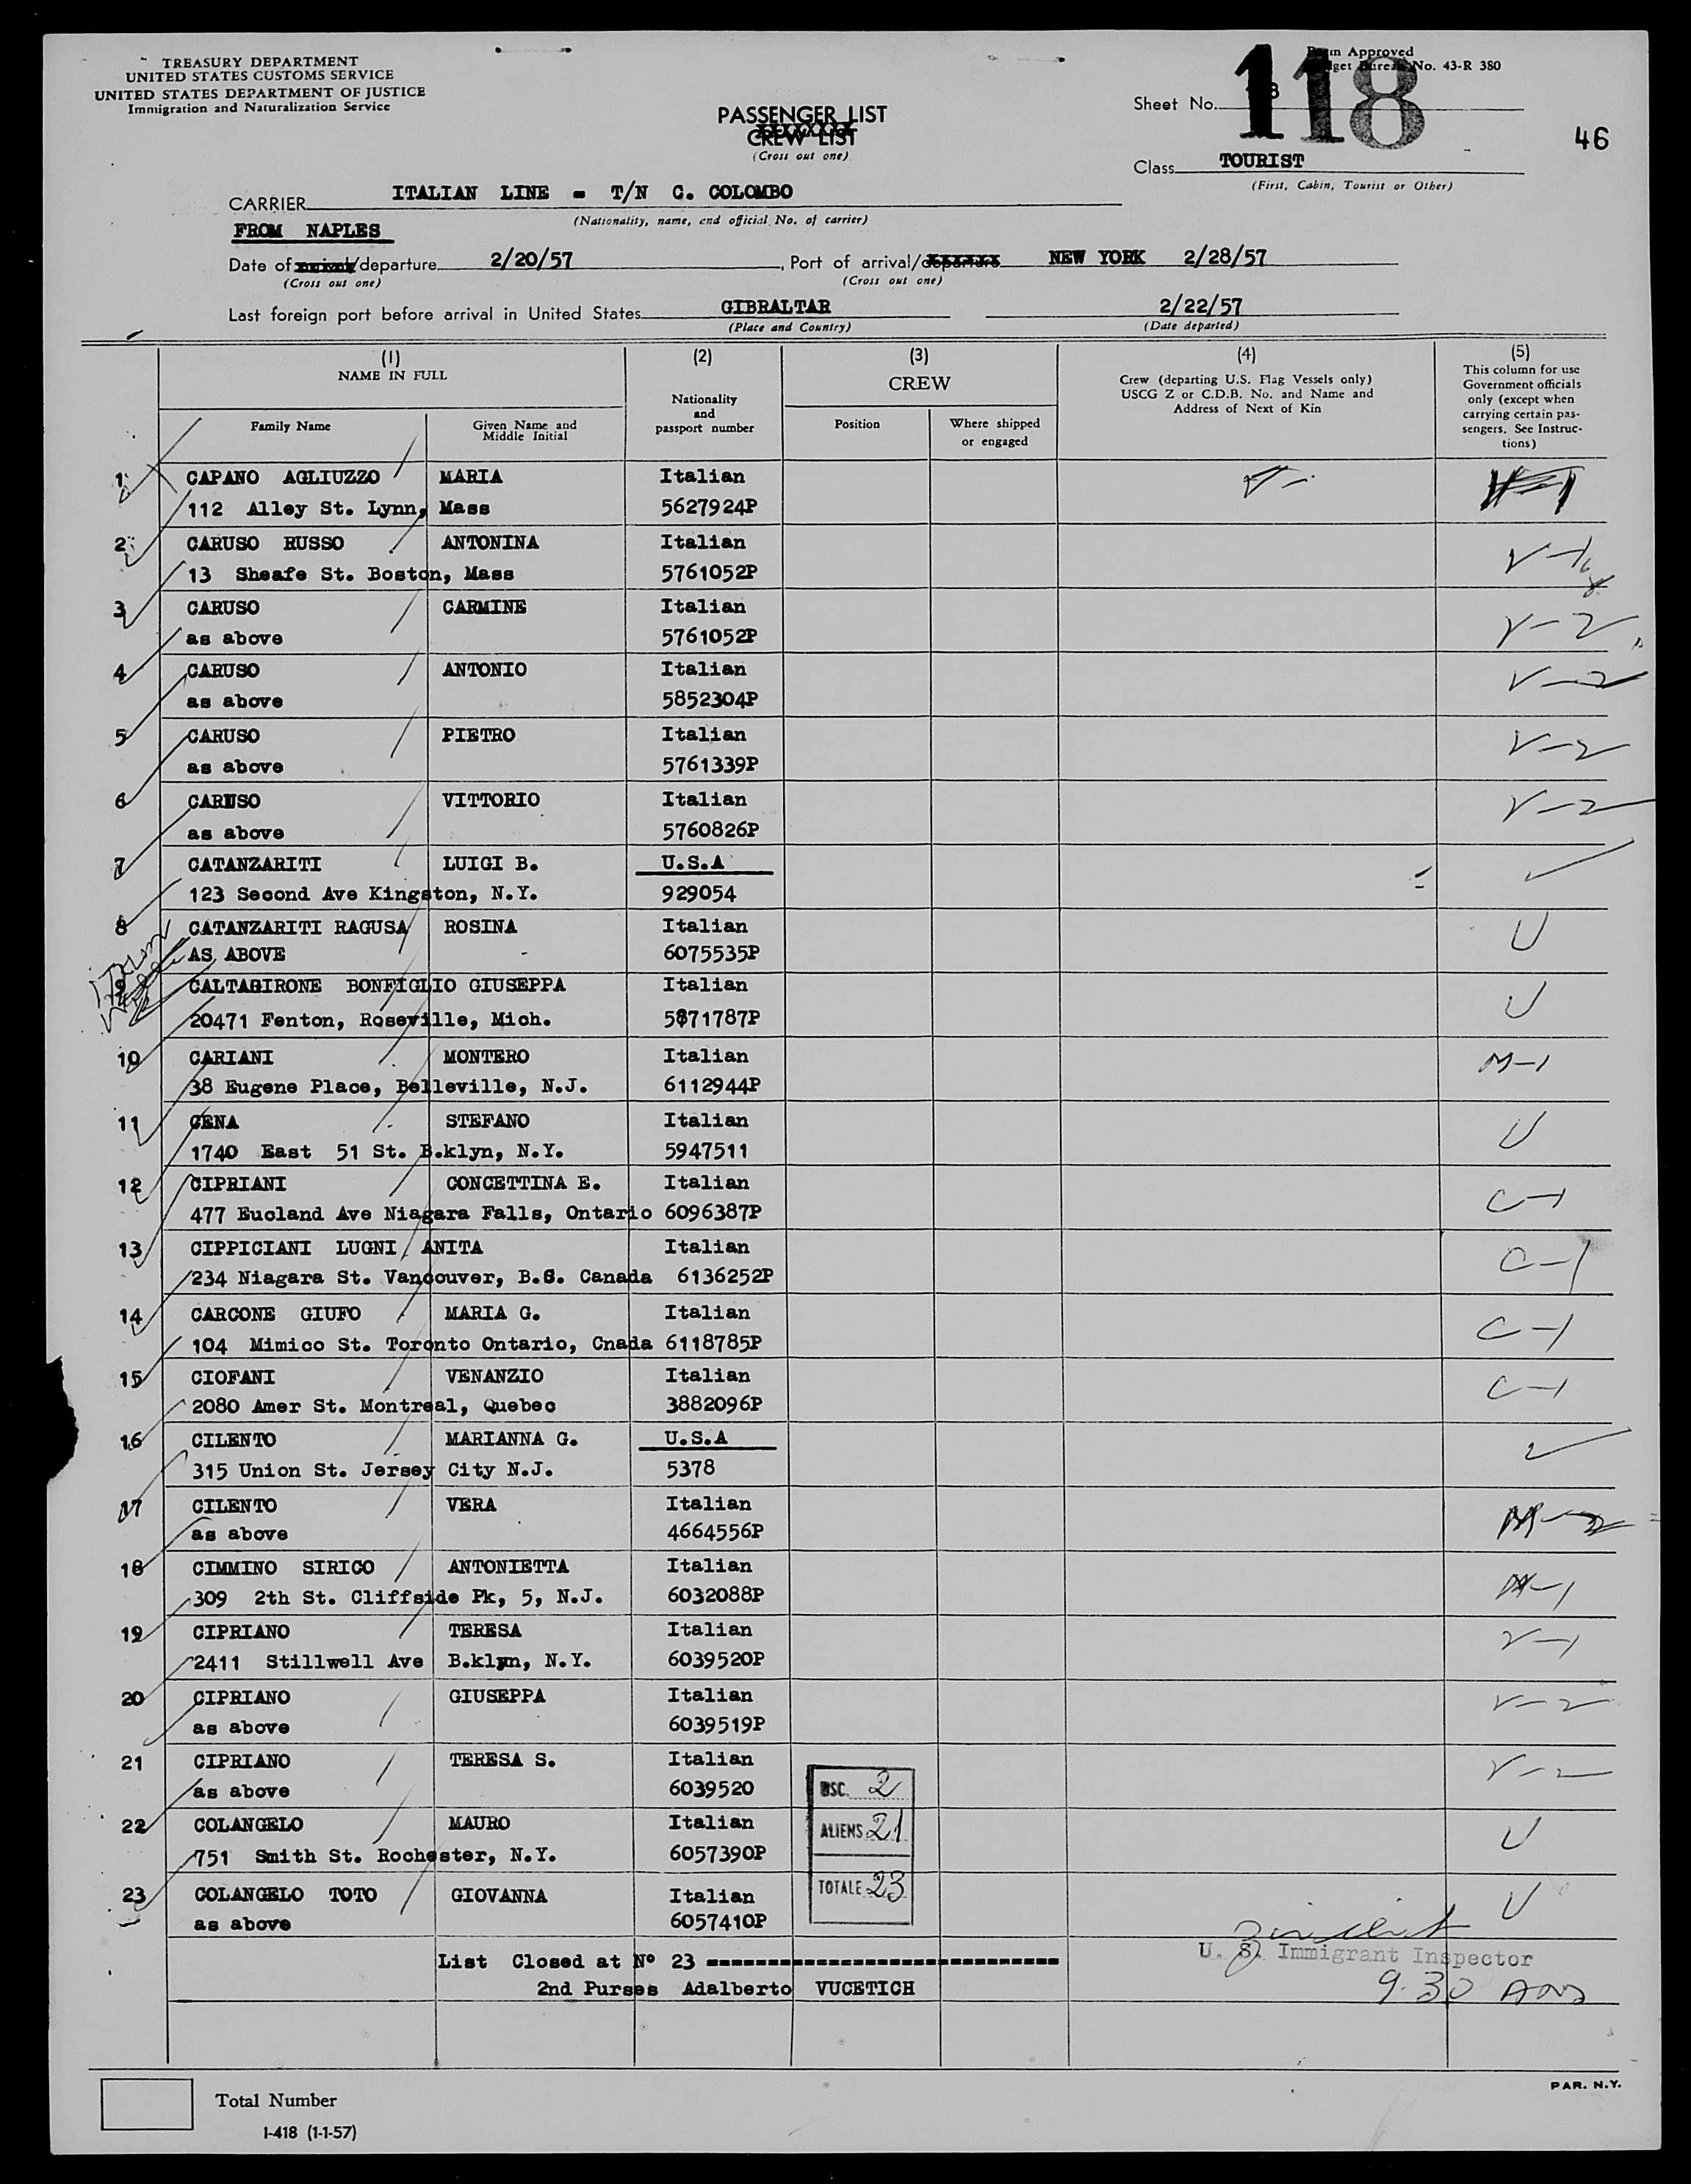 TREASURY DEPARTMENT
UNITED STATES CUSTOMS SERVICE
UNITED STATES DEPARTMENT OF JUSTICE
Immigration and Naturalization Service
PASSENGER LIST
CREW LIST
(Cross out one)
Form Approved
Budget Bureau No. 43-R 380
Sheet No. 118
46
Class TOURIST
(First, Cabin, Tourist or Other)
CARRIER ITALIAN LINE - T/N C. COLOMBO
(Nationality, name, and official No. of carrier)
FROM NAPLES
Date of arrival/departure 2/20/57, Port of arrival/departure NEW YORK 2/28/57
(Cross out one) (Cross out one)
Last foreign port before arrival in United States GIBRALTAR 2/22/57
(Place and Country) (Date departed)
(1) NAME IN FULL
Family Name
Given Name and Middle Initial
(2)
Nationality
and
passport number
(3)
CREW
Position
Where shipped
or engaged
(4)
Crew (departing U.S. Flag Vessels only)
USCG Z or C.D.B. No. and Name and
Address of Next of Kin
(5)
This column for use
Government officials
only (except when
carrying certain pas-
sengers. See Instruc-
tions)
1 CAPANO AGLIUZZO MARIA Italian
112 Alley St. Lynn, Mass 5627924P
2 CARUSO RUSSO ANTONINA Italian V-1
13 Sheafe St. Boston, Mass 5761052P
3 CARUSO CARMINE Italian V-2
as above 5761052P
4 CARUSO ANTONIO Italian V-2
as above 5852304P
5 CARUSO PIETRO Italian V-2
as above 5761339P
6 CARUSO VITTORIO Italian V-2
as above 5760826P
7 CATANZARITI LUIGI B. U.S.A
123 Second Ave Kingston, N.Y. 929054
8 CATANZARITI RAGUSA ROSINA Italian U
AS ABOVE 6075535P
9 CALTAGIRONE BONFIGLIO GIUSEPPA Italian U
20471 Fenton, Roseville, Mich. 5871787P
10 CARIANI MONTERO Italian M-1
38 Eugene Place, Belleville, N.J. 6112944P
11 CENA STEFANO Italian U
1740 East 51 St. B.klyn, N.Y. 5947511
12 CIPRIANI CONCETTINA E. Italian C-1
477 Eucland Ave Niagara Falls, Ontario 6096387P
13 CIPPICIANI LUGNI ANITA Italian C-1
234 Niagara St. Vancouver, B.C. Canada 6136252P
14 CARCONE GIUFO MARIA G. Italian C-1
104 Mimico St. Toronto Ontario, Cnada 6118785P
15 CIOFANI VENANZIO Italian C-1
2080 Amer St. Montreal, Quebec 3882096P
16 CILENTO MARIANNA G. U.S.A
315 Union St. Jersey City N.J. 5378
17 CILENTO VERA Italian M-2
as above 4664556P
18 CIMMINO SIRICO ANTONIETTA Italian M-1
309 2th St. Cliffside Pk, 5, N.J. 6032088P
19 CIPRIANO TERESA Italian V-1
2411 Stillwell Ave B.klyn, N.Y. 6039520P
20 CIPRIANO GIUSEPPA Italian V-2
as above 6039519P
21 CIPRIANO TERESA S. Italian V-2
as above 6039520
22 COLANGELO MAURO Italian U
751 Smith St. Rochester, N.Y. 6057390P
23 COLANGELO TOTO GIOVANNA Italian U
as above 6057410P
USC. 2
ALIENS 21
TOTALE 23
List Closed at Nº 23
2nd Purses Adalberto VUCETICH
U. S. Immigrant Inspector
9.30
Total Number
I-418 (1-1-57)
PAR. N.Y.